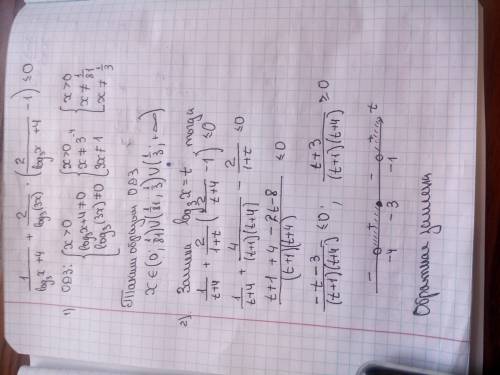 1/(log₃x+4) + 2/(log₃(3x)) · (2/(log₃x+4) − 1) ≤ 0
1) ОДЗ: { x>0 ; log₃x+4≠0 ; log₃(3x)≠0 { x>0 ; x≠3⁻⁴ ; 3x≠1 { x>0 ; x≠1/81 ; x≠1/3
Таким образом ОДЗ
x∈(0; 1/81)∪(1/81; 1/3)∪(1/3; +∞)
2) Замена log₃x=t, тогда
1/(t+4) + 2/(1+t) (2/(t+4) − 1) ≤ 0
1/(t+4) + 4/((t+1)(t+4)) − 2/(1+t) ≤ 0
(t+1+4−2t−8)/((t+1)(t+4)) ≤ 0
(−t−3)/((t+1)(t+4)) ≤ 0; (t+3)/((t+1)(t+4)) ≥ 0
− − t
−4 −3 −1
Обратная замена